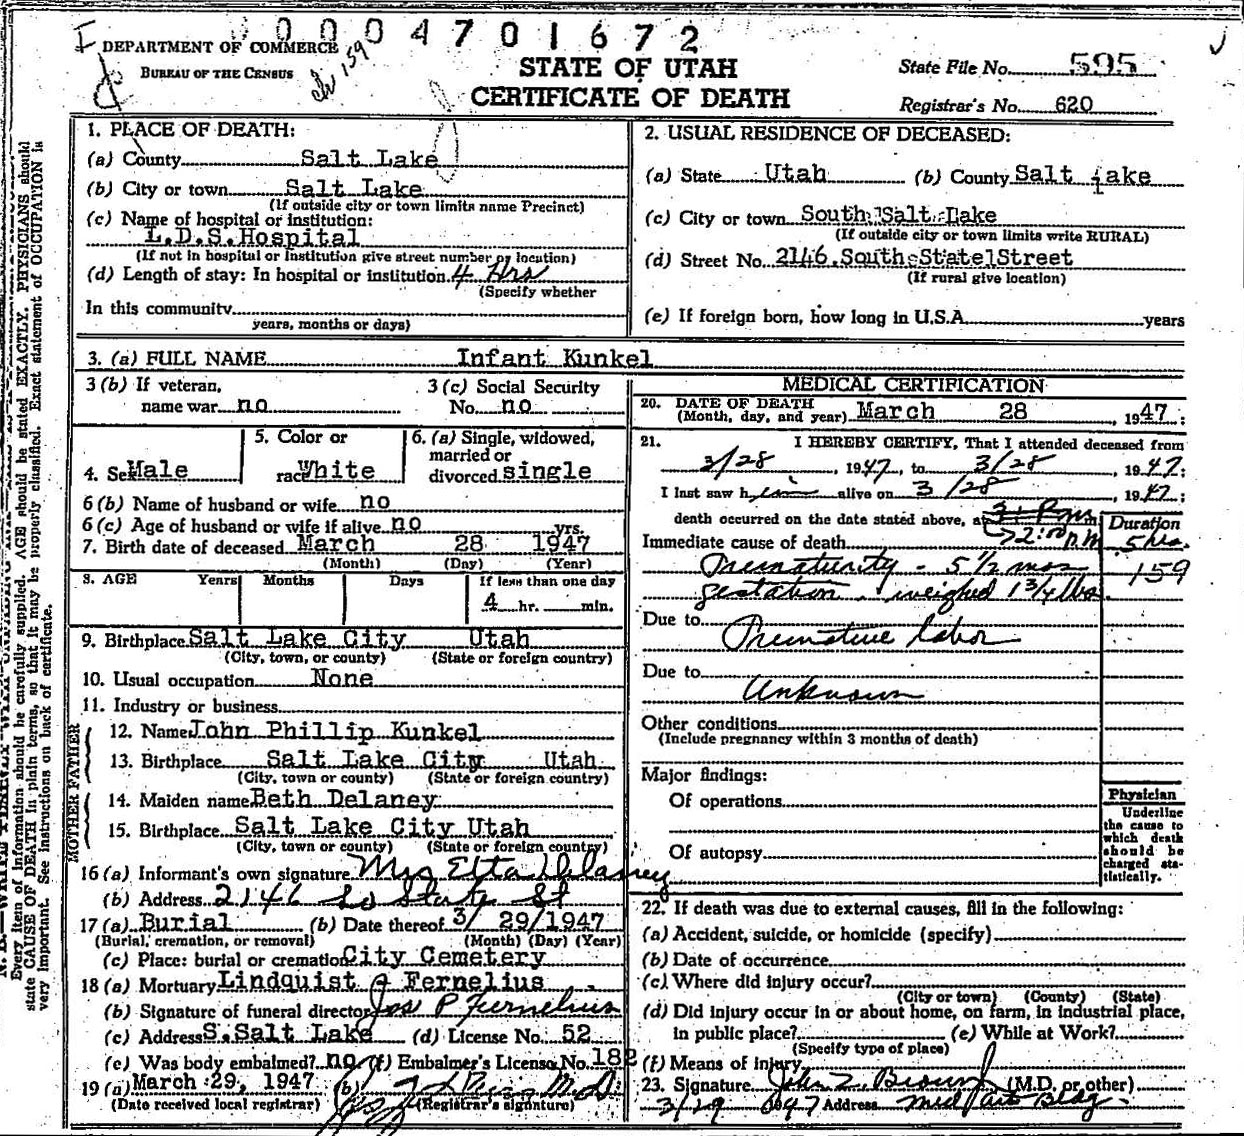 0004701672
DEPARTMENT OF COMMERCE
BUREAU OF THE CENSUS
159
STATE OF UTAH
CERTIFICATE OF DEATH
State File No. 595
Registrar's No. 620
1. PLACE OF DEATH:
(a) County Salt Lake
(b) City or town Salt Lake
(If outside city or town limits name Precinct)
(c) Name of hospital or institution:
L.D.S. Hospital
(If not in hospital or institution give street number or location)
(d) Length of stay: In hospital or institution 4 Hrs
(Specify whether
In this community
years, months or days)
2. USUAL RESIDENCE OF DECEASED:
(a) State Utah (b) County Salt Lake
(c) City or town South Salt Lake
(If outside city or town limits write RURAL)
(d) Street No. 2146 South State Street
(If rural give location)
(e) If foreign born, how long in U.S.A. years
3. (a) FULL NAME Infant Kunkel
3 (b) If veteran,
name war no
3 (c) Social Security
No. no
4. Sex Male
5. Color or
race White
6. (a) Single, widowed,
married or
divorced single
6 (b) Name of husband or wife no
6 (c) Age of husband or wife if alive no yrs.
7. Birth date of deceased March 28 1947
(Month) (Day) (Year)
8. AGE Years Months Days If less than one day
4 hr. min.
9. Birthplace Salt Lake City Utah
(City, town, or county) (State or foreign country)
10. Usual occupation None
11. Industry or business
FATHER
12. Name John Phillip Kunkel
13. Birthplace Salt Lake City Utah
(City, town or county) (State or foreign country)
MOTHER
14. Maiden name Beth Delaney
15. Birthplace Salt Lake City Utah
(City, town or county) (State or foreign country)
16 (a) Informant's own signature Mrs Etta Delaney
(b) Address 2146 So State St
17 (a) Burial (b) Date thereof 3/ 29/1947
(Burial, cremation, or removal) (Month) (Day) (Year)
(c) Place: burial or cremation City Cemetery
18 (a) Mortuary Lindquist & Fernelius
(b) Signature of funeral director Jos P Fernelius
(c) Address S. Salt Lake (d) License No. 52
(e) Was body embalmed? no (f) Embalmer's License No. 182
19 (a) March 29, 1947 (b) M.D.
(Date received local registrar) (Registrar's signature)
MEDICAL CERTIFICATION
20. DATE OF DEATH
(Month, day, and year) March 28, 1947
21. I HEREBY CERTIFY, That I attended deceased from
3/28, 1947, to 3/28, 1947
I last saw him alive on 3/28, 1947
death occurred on the date stated above, at 2:00 p.m
Duration
Immediate cause of death 5 hrs.
Prematurity - 5 1/2 mos 159
gestation. weighed 1 3/4 lbs.
Due to Premature labor
Due to Unknown
Other conditions
(Include pregnancy within 3 months of death)
Major findings:
Of operations
Of autopsy
Physician
Underline
the cause to
which death
should be
charged sta-
tistically.
22. If death was due to external causes, fill in the following:
(a) Accident, suicide, or homicide (specify)
(b) Date of occurrence
(c) Where did injury occur?
(City or town) (County) (State)
(d) Did injury occur in or about home, on farm, in industrial place,
in public place? (e) While at Work?
(Specify type of place)
(f) Means of injury
23. Signature John Z. Brown Jr (M.D. or other)
3/29 1947 Address Med Arts Bldg.
Every item of information should be carefully supplied. AGE should be stated EXACTLY. PHYSICIANS should
state CAUSE OF DEATH in plain terms, so that it may be properly classified. Exact statement of OCCUPATION is
very important. See instructions on back of certificate.